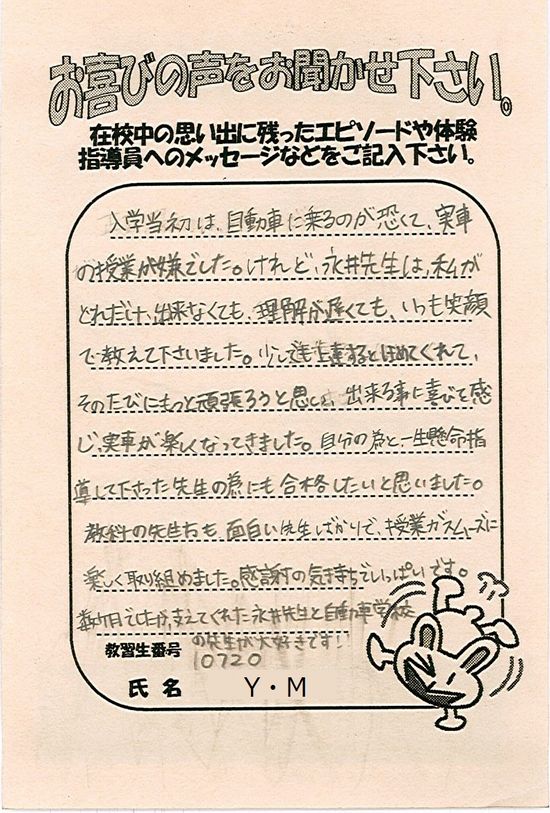 お喜びの声をお聞かせ下さい。
在校中の思い出に残ったエピソードや体験
指導員へのメッセージなどをご記入下さい。
入学当初は、自動車に乗るのが恐くて、実車
の授業が嫌でした。けれど、永井先生は、私が
どれだけ出来なくても、理解が遅くても、いつも笑顔
で教えて下さいました。少しでも上達するとほめてくれて、
そのたびにもっと頑張ろうと思し、出来る事に喜びを感
じ、実車が楽しくなってきました。自分の為と一生懸命指
導して下さった先生の為にも合格したいと思いました。
教科の先生方も、面白い先生ばかりで、授業がスムーズに
楽しく取り組めました。感謝の気持ちでいっぱいです。
数ヶ月でしたが、支えてくれた永井先生と自動車学校
の先生が大好きです!
教習生番号 10720
氏名 Y・M